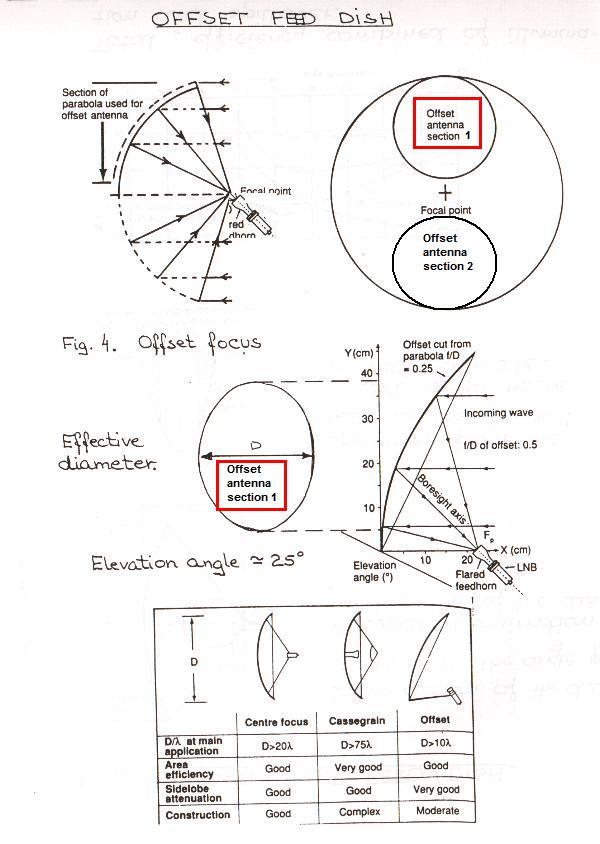 OFFSET FEED DISH
Section of
parabola used for
offset antenna
Focal point
red
Offset
antenna
section 1
Focal point
Offset
antenna
section 2
Fig. 4. Offset focus
Y(cm)
40
30
20
10
Offset cut from
parabola f/D
= 0.25
Incoming wave
f/D of offset: 0.5
Boresight axis
F
X (cm)
10
20
LNB
Flared
feedhorn
Elevation
angle (°)
Effective
diameter.
D
Offset
antenna
section 1
Elevation angle ≃ 25°
D
Centre focus Cassegrain Offset
D/λ at main
application D>20λ D>75λ D>10λ
Area
efficiency Good Very good Good
Sidelobe
attenuation Good Good Very good
Construction Good Complex Moderate